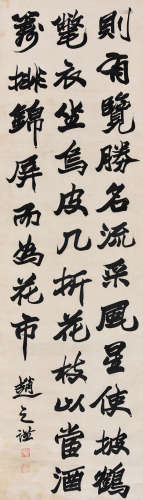 則有覽勝名流采風星使披鶴
氅衣坐烏皮几折花枝以當酒
籌排錦屏而為花市
趙之謙